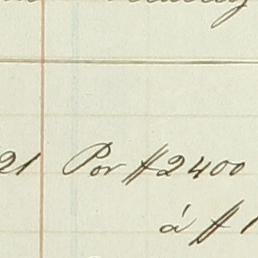 21 Por $2400
á $1